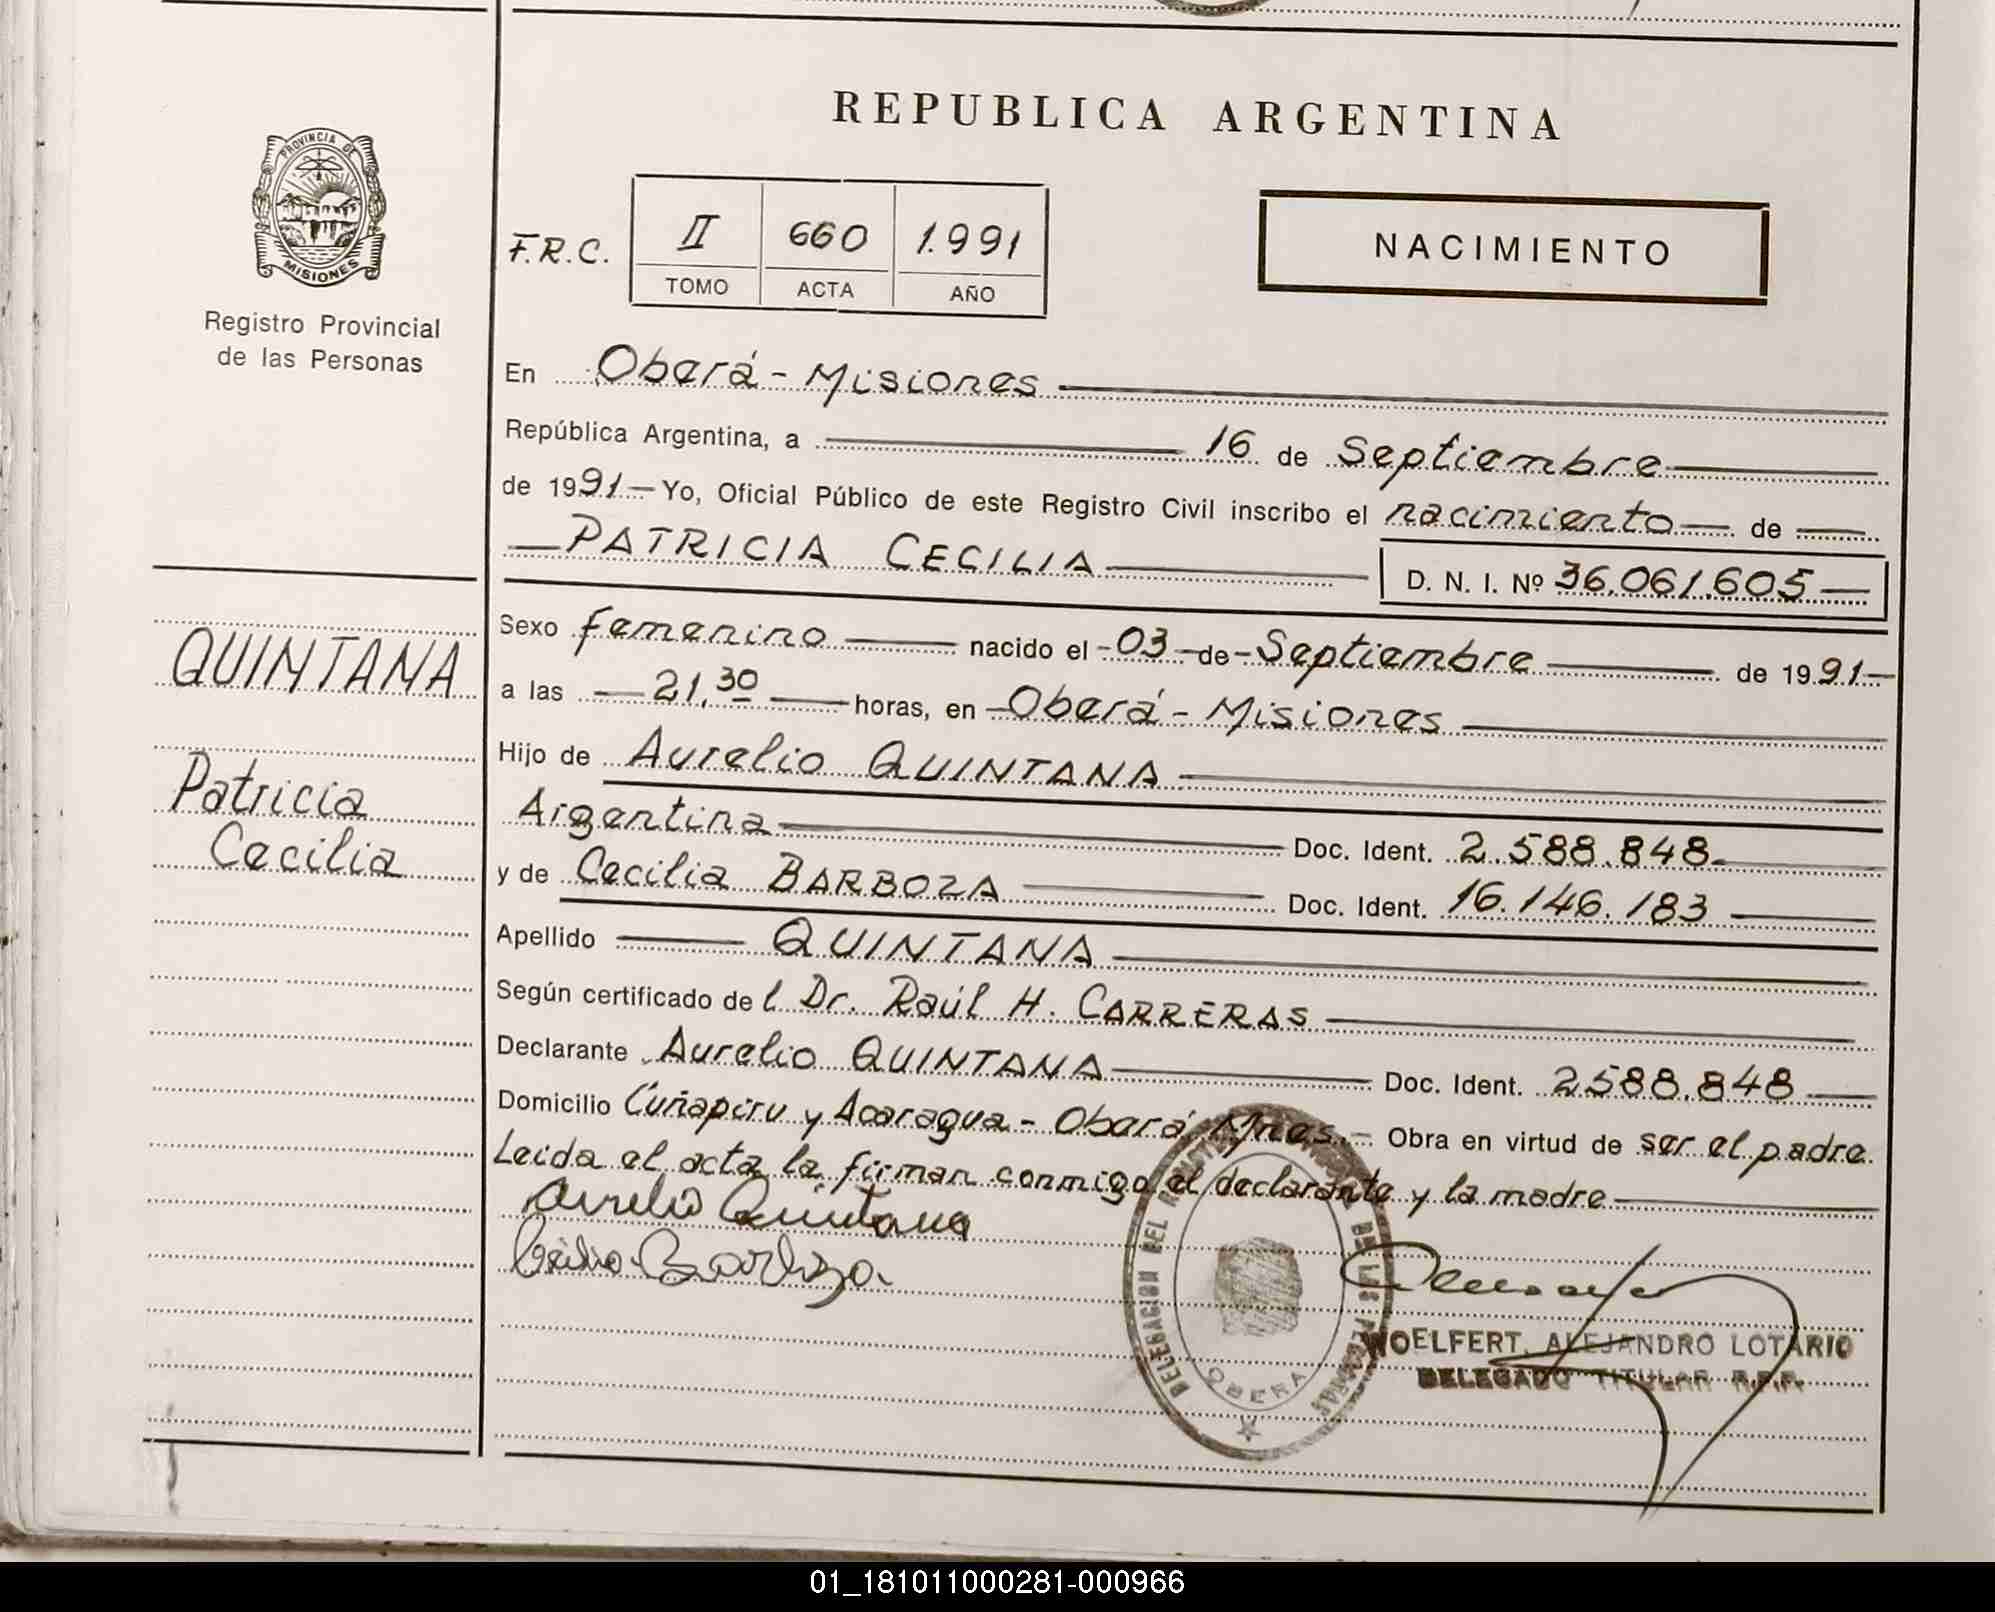 REPUBLICA ARGENTINA
PROVINCIA DE
MISIONES
Registro Provincial
de las Personas
F.R.C. II 660 1.991
TOMO ACTA AÑO
NACIMIENTO
En Oberá - Misiones
República Argentina, a 16 de Septiembre
de 1991 - Yo, Oficial Público de este Registro Civil inscribo el nacimiento de
PATRICIA CECILIA D. N. I. Nº 36.061.605
QUINTANA
Patricia
Cecilia
Sexo femenino nacido el - 03 - de - Septiembre de 1991 -
a las 21,30 horas, en Oberá - Misiones
Hijo de Aurelio QUINTANA
Argentina Doc. Ident. 2.588.848.
y de Cecilia BARBOZA Doc. Ident. 16.146.183
Apellido QUINTANA
Según certificado de l Dr. Raúl H. CARRERAS
Declarante Aurelio QUINTANA Doc. Ident. 2588.848
Domicilio Cuñapiru y Acaragua - Oberá Mnes. - Obra en virtud de ser el padre.
Leida el acta la firman conmigo el declarante y la madre
Aurelio Quintana
Cecilia Barboza
DELEGACION DEL REGISTRO PROVINCIAL DE LAS PERSONAS
OBERA
WOELFERT, ALEJANDRO LOTARIO
DELEGADO TITULAR R.P.P.
01_181011000281-000966